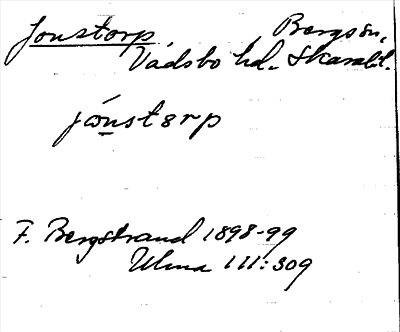 Jonstorp, Bergsn,
Vadsbo hd. Skarabl.
jónstorp
F. Bergstrand 1898-99
Ulma 111:309